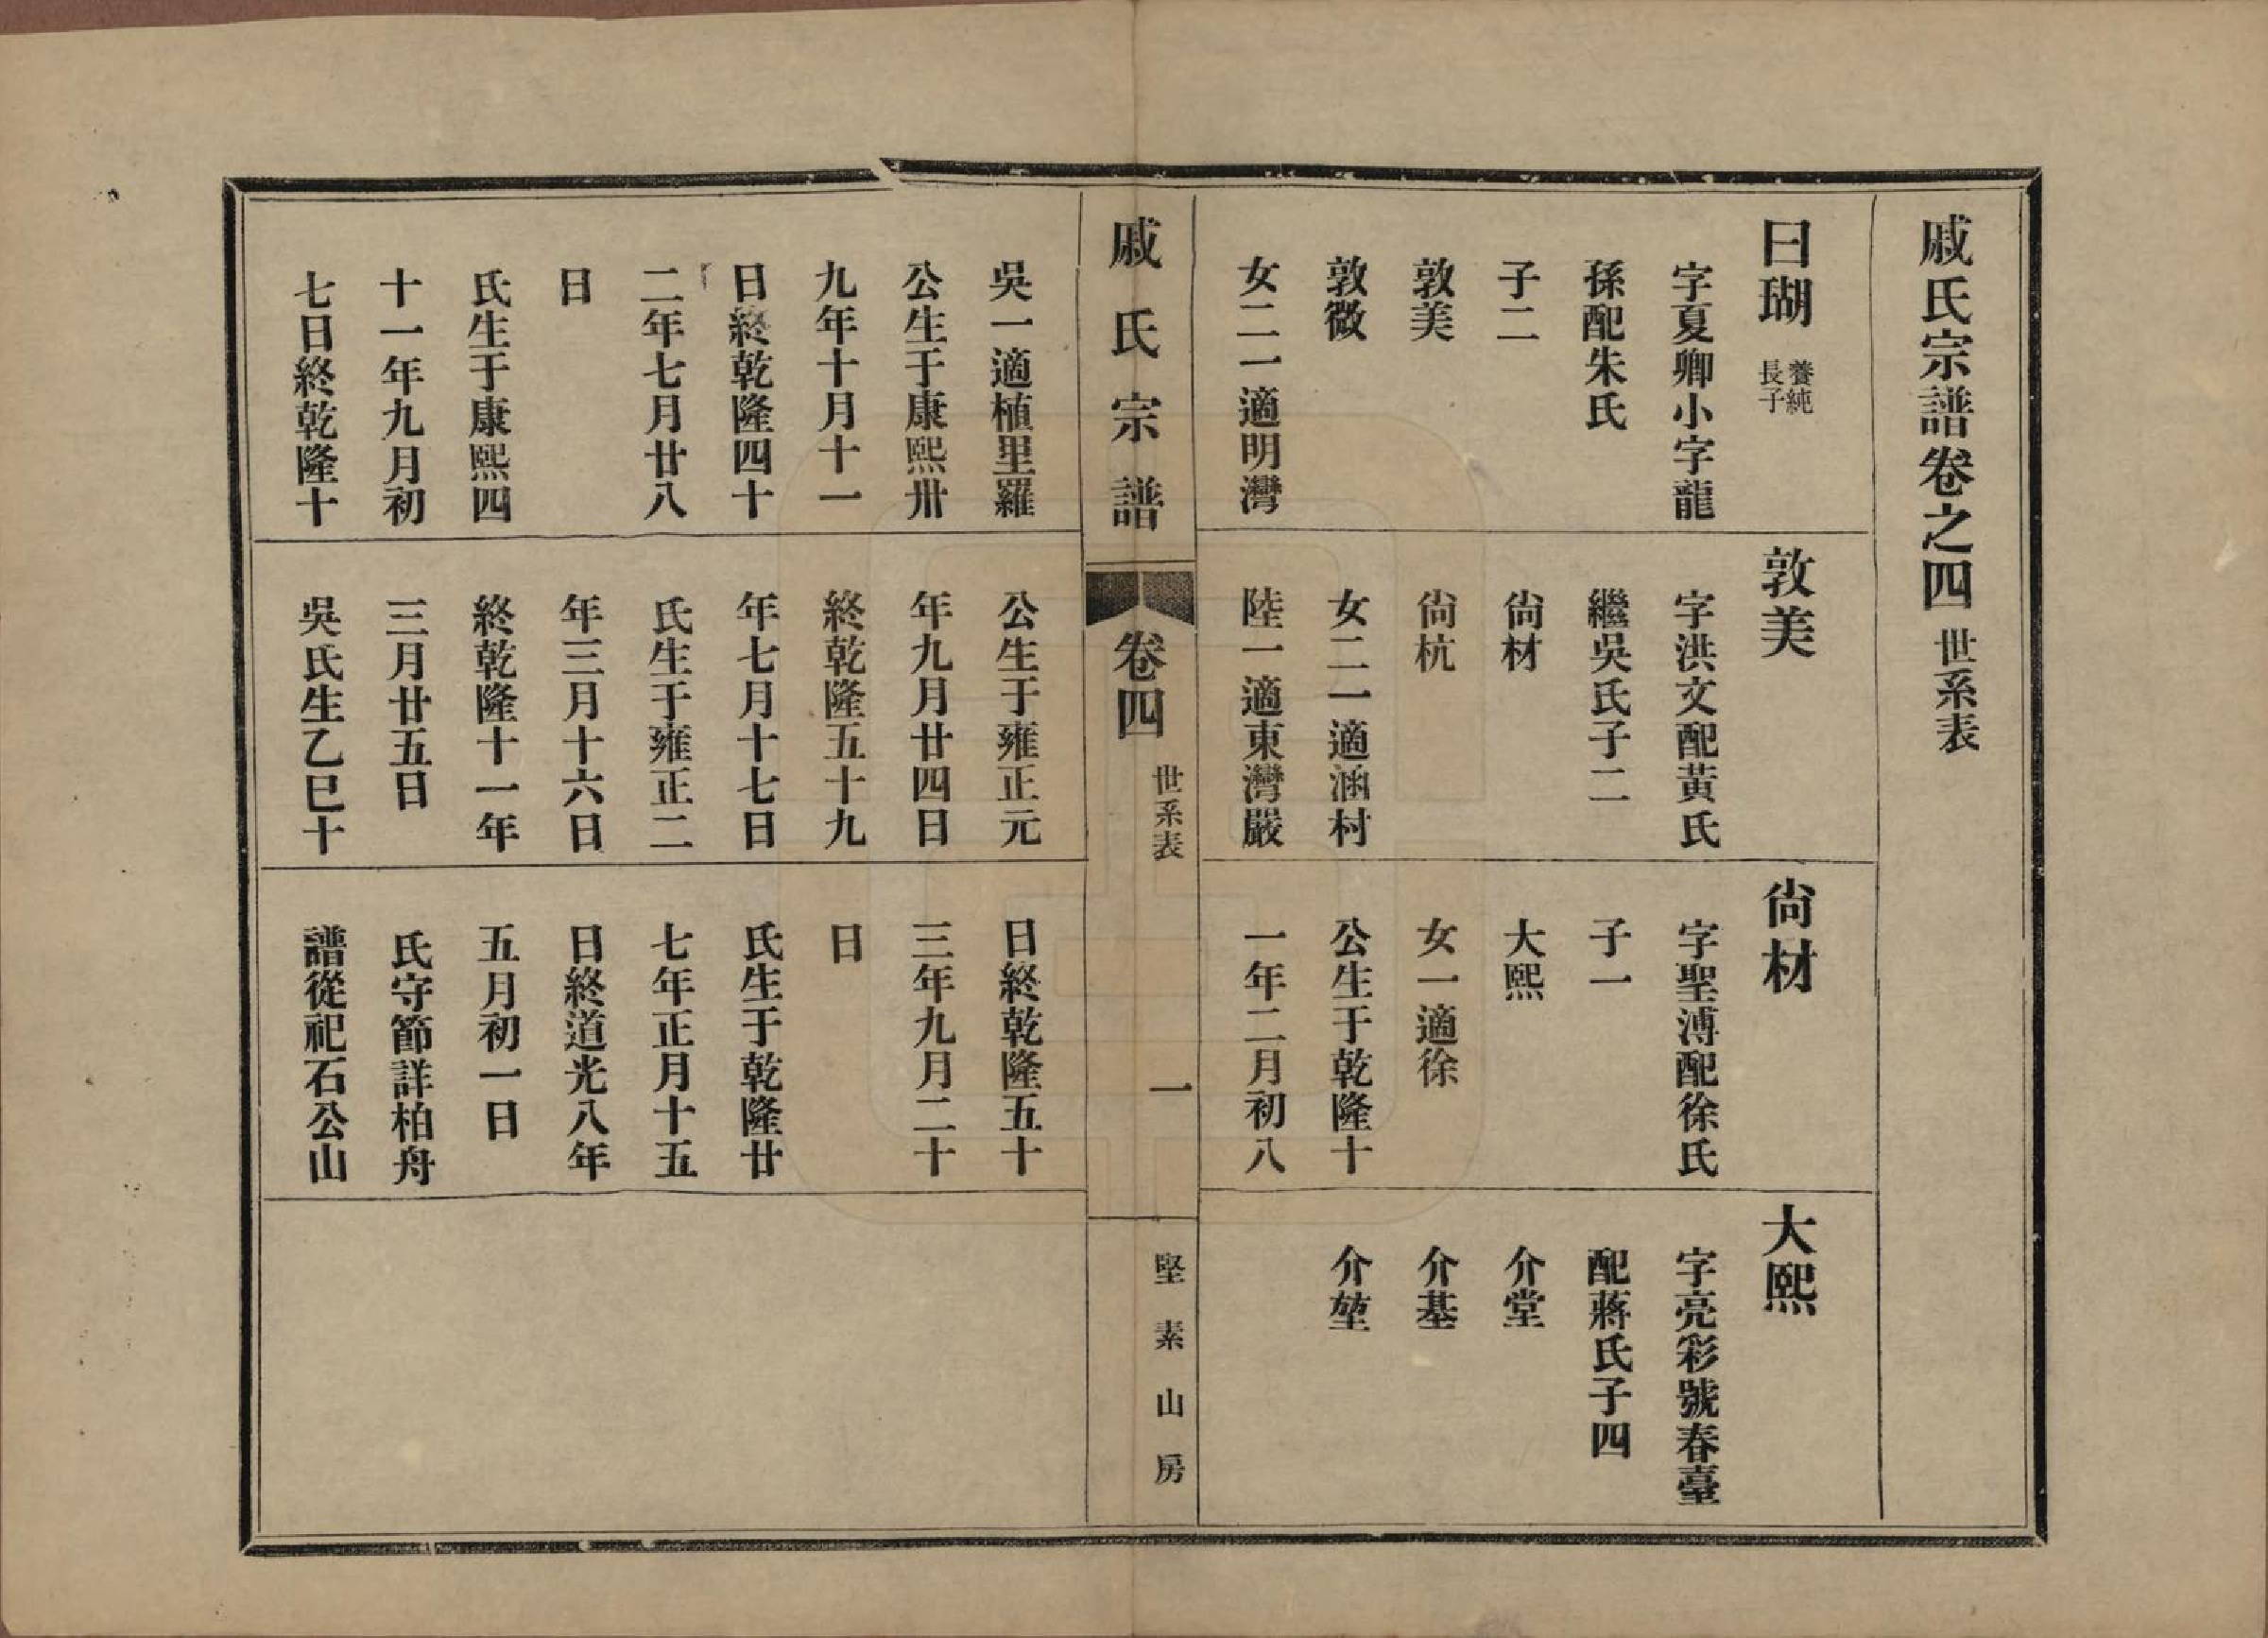 戚氏宗譜卷之四 世系表
曰瑚 養純長子
字夏卿小字龍
孫配朱氏
子二
敦美
敦徵
女二一適明灣
敦美
字洪文配黃氏
繼吳氏子二
尙材
尙杭
女二一適涵村
陸一適東灣嚴
尙材
字聖溥配徐氏
子一
大熙
女一適徐
公生于乾隆十
一年二月初八
大熙
字亮彩號春臺
配蔣氏子四
介堂
介基
介堃
戚氏宗譜
卷四
世系表
一
堅素山房
吳一適植里羅
公生于康熙卅
九年十月十一
日終乾隆四十
二年七月廿八
日
氏生于康熙四
十一年九月初
七日終乾隆十
公生于雍正元
年九月廿四日
終乾隆五十九
年七月十七日
氏生于雍正二
年三月十六日
終乾隆十一年
三月廿五日
吳氏生乙巳十
日終乾隆五十
三年九月二十
日
氏生于乾隆廿
七年正月十五
日終道光八年
五月初一日
氏守節詳柏舟
譜從祀石公山